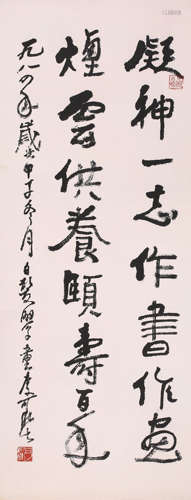 凝神一志作書作画
煙雲供養頤壽百年
一九八四年歲次甲子冬月